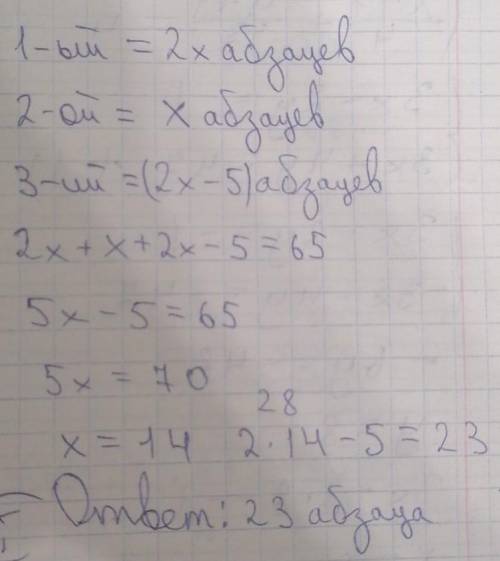 1-ый = 2x абзацев
2-ой = x абзацев
3-ий = (2x-5) абзацев
2x + x + 2x - 5 = 65
5x - 5 = 65
5x = 70
28
x = 14 2·14 - 5 = 23
Ответ: 23 абзаца